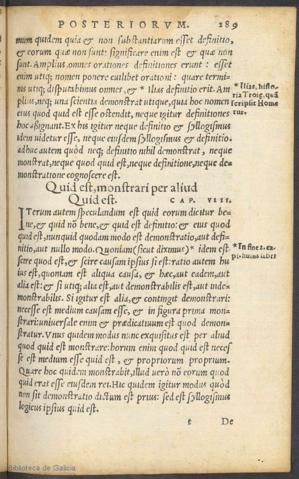 POSTERIORVM. 289
mum quidem quia & non substantiarum esset definitio,
& eorum quæ non sunt: significare enim est & quæ non
sunt. Amplius omnes orationes definitiones erunt: esset
enim utiq; nomen ponere cuilibet orationi: quare termi-
nis utiq; disputabimus omnes, & * Ilias definitio erit. Am
plius, neq; una scientia demonstrat utique, quòd hoc nomen
eius quod quid est esse ostendit, neque igitur definitiones
hoc assignant. Ex his igitur neque definitio & syllogismus
idem uidetur esse, neque eiusdem syllogismus & definitio.
adhuc autem quòd neq; definitio nihil demonstrat, neque
monstrat, neque quod quid est, neque definitione, neque de-
monstratione cognoscere est.
* Ilias, histo-
ria Troię, quã
scripsit Home
rus.
Quid est, monstrari per aliud
Quid est. CAP. VIII.
ITerum autem speculandum est quid eorum dicitur be-
ne, & quid nõ bene, & quid est definitio: & eius quod
quid est, nunquid quodam modo est demonstratio, aut defi-
nitio, aut nullo modo. Quoniam (sicut diximus)* idem est
scire quod est, & scire causam ipsius si est: ratio autem hu
ius est, quoniam est aliqua causa, & hæc, aut eadem, aut
alia est: & si utiq; alia est, aut demonstrabilis est, aut inde-
monstrabilis. Si igitur est alia, & contingit demonstrari:
necesse est medium causam esse, & in figura prima mon-
strari: uniuersale enim & prædicatiuum est quod demon-
stratur. Vnus quidem modus nunc exquisitus est per aliud
quod quid est monstrare: horum enim quod quid est necef
se est medium esse quid est, & propriorum proprium.
Quare hoc quidem monstrabit, illud uerò nõ eorum quod
quid erat esse eiusdem rei. Hic quidem igitur modus quòd
non sit demonstratio dictum est prius: sed est syllogismus
logicus ipsius quid est.
t De
Biblioteca de Galicia